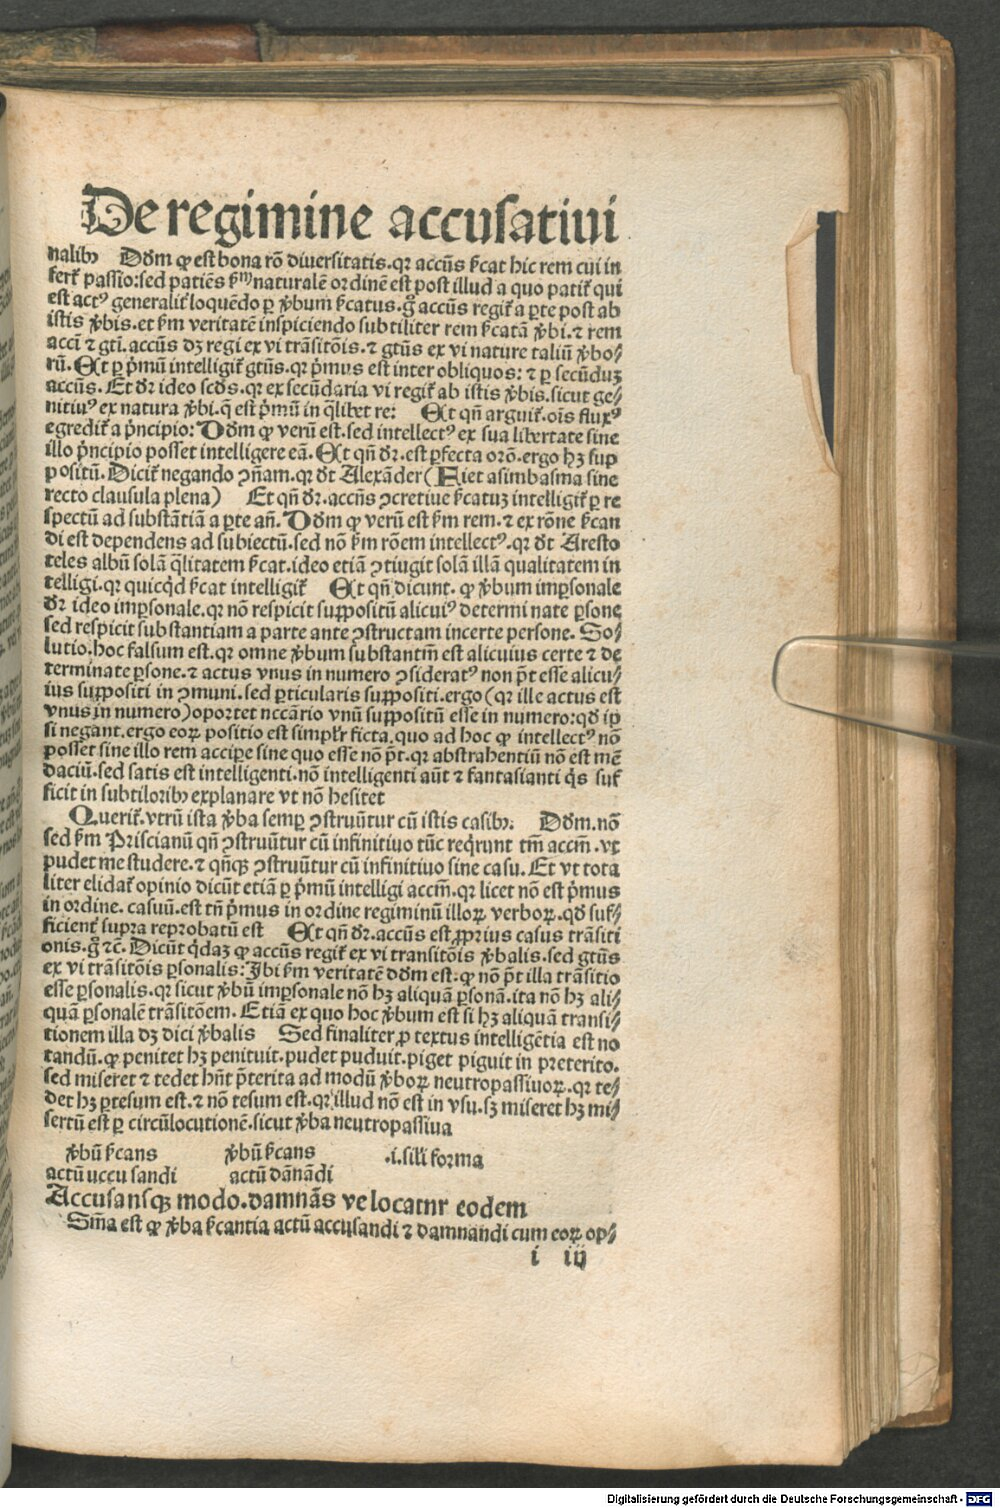 De regimine accusatiui
nalibꝰ Dōm ꝙ est bona rō diuersitatis. qꝛ accūs ẜcat hic rem cui in
fert᷑ passio: sed patiēs ẜm naturalē ordinē est post illud a quo patit᷑ qui
est actꝰ generalit᷑ loquēdo ꝑ ꝟbum ẜcatus. g̊ accūs regit᷑ a parte post ab
istis ꝟbis. et ẜm veritatē inspiciendo subtiliter rem ẜcatā ꝟbi. ⁊ rem
acci ⁊ gti. accūs dꝫ regi ex vi trāsitōis. ⁊ gtūs ex vi nature taliū ꝟbo⸗
rū. Et ꝑ pͥmū intelligit᷑ gtūs. qꝛ pͥmus est inter obliquos: ⁊ ꝑ secūduꝫ
accūs. Et dr̄ ideo scd̄s. qꝛ ex secūdaria vi regit᷑ ab istis ꝟbis. sicut ge⸗
nitiuꝰ ex natura ꝟbi. q̄ est pͥmū in q̄libet re: Et qn̄ arguit᷑. oīs fluxꝰ
egredit᷑ a pͥncipio: Dōm ꝙ verū est. sed intellectꝰ ex sua libertate sine
illo pͥncipio posset intelligere eā. Et qn̄ dr̄. est ꝑfecta orō. ergo hꝫ sup
positū. Dicit᷑ negando ꝯn̄am. qꝛ dt̄ Alexāder (Fiet asimbasma sine
recto clausula plena) Et qn̄ dr̄. accn̄s ꝯcretiue ẜcatuꝫ intelligit᷑ ꝑ re
spectū ad substātiā a ꝑte an̄. Dōm ꝙ verū est ẜm rem. ⁊ ex rōne ẜcan
di est dependens ad subiectū. sed nō ẜm rōem intellectꝰ. qꝛ dt̄ Aresto
teles albū solā q̄litatem ẜcat. ideo etiā ꝯtiugit solā illā qualitatem in
telligi. qꝛ quicqͥd ẜcat intelligit᷑ Et qn̄ dicunt. ꝙ ꝟbum imꝑsonale
dr̄ ideo imꝑsonale. qꝛ nō respicit suppositū alicuiꝰ determi nate ꝑsone
sed respicit substantiam a parte ante ꝯstructam incerte persone. So⸗
lutio. hoc falsum est. qꝛ omne ꝟbum substantiū est alicuius certe ⁊ de
terminate ꝑsone. ⁊ actus vnus in numero ꝯsideratꝰ non pōt esse alicu⸗
ius suppositi in ꝯmuni. sed ꝑticularis suppositi. ergo (qꝛ ille actus est
vnus in numero) oportet nccārio vnū suppositū esse in numero: qd̄ ip
si negant. ergo eoꝝ positio est simplr̄ ficta. quo ad hoc ꝙ intellectꝰ nō
posset sine illo rem accipe sine quo esse nō pōt. qꝛ abstrahentiū nō est mē
daciū. sed satis est intelligenti. nō intelligenti aūt ⁊ fantasianti qͥs suf
ficit in subtiloribꝰ explanare vt nō hesitet
Querit᷑. vtrū ista ꝟba semꝑ ꝯstruūtur cū istis casibꝰ. Dōm. nō
sed ẜm Priscianū qn̄ ꝯstruūtur cū infinitiuo tūc reqͥrunt tm̄ accm̄. vt
pudet me studere. ⁊ qn̄qꝫ ꝯstruūtur cū infinitiuo sine casu. Et vt tota
liter elidat᷑ opinio dicūt etiā ꝑ pͥmū intelligi accm̄. qꝛ licet nō est pͥmus
in ordine. casuū. est tn̄ pͥmus in ordine regiminū illoꝝ verboꝝ. qd̄ suf⸗
ficient᷑ supra reprobatū est Et qn̄ dr̄. accūs est ꝓprius casus trāsiti
onis. g̊ ⁊c̄. Dicūt qͥdaꝫ ꝙ accūs regit᷑ ex vi transitōis ꝟbalis. sed gtūs
ex vi trāsitōis ꝑsonalis: Ibi ẜm veritatē dōm est. ꝙ nō pōt illa trāsitio
esse ꝑsonalis. qꝛ sicut ꝟbū imꝑsonale nō hꝫ aliquā ꝑsonā. ita nō hꝫ ali⸗
quā ꝑsonalē trāsitōem. Etiā ex quo hoc ꝟbum est si hꝫ aliquā transi⸗
tionem illa dꝫ dici ꝟbalis Sed finaliter ꝓ textus intelligētia est no
tandū. ꝙ penitet hꝫ penituit. pudet puduit. piget piguit in preterito.
sed miseret ⁊ tedet hn̄t pͥterita ad modū ꝟboꝝ neutropassiuoꝝ. qꝛ te⸗
det hꝫ ꝑtesum est. ⁊ nō tesum est. qꝛ illud nō est in vsu. sꝫ miseret hꝫ mi⸗
sertū est ꝑ circūlocutionē. sicut ꝟba neutropassiua
ꝟbū ẜcans ꝟbū ẜcans .i. sili forma
actū uccu sandi actū dānādi
Accusansqꝫ modo. damnās ve locatnr eodem
Sm̄a est ꝙ ꝟba ẜcantia actū accusandi ⁊ damnandi cum eoꝝ op⸗
i iij
Digitalisierung gefördert durch die Deutsche Forschungsgemeinschaft - DFG